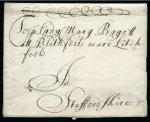 Lady Mary Bagott
att Blithfeld neare Litch
feld
In
Staffordshire